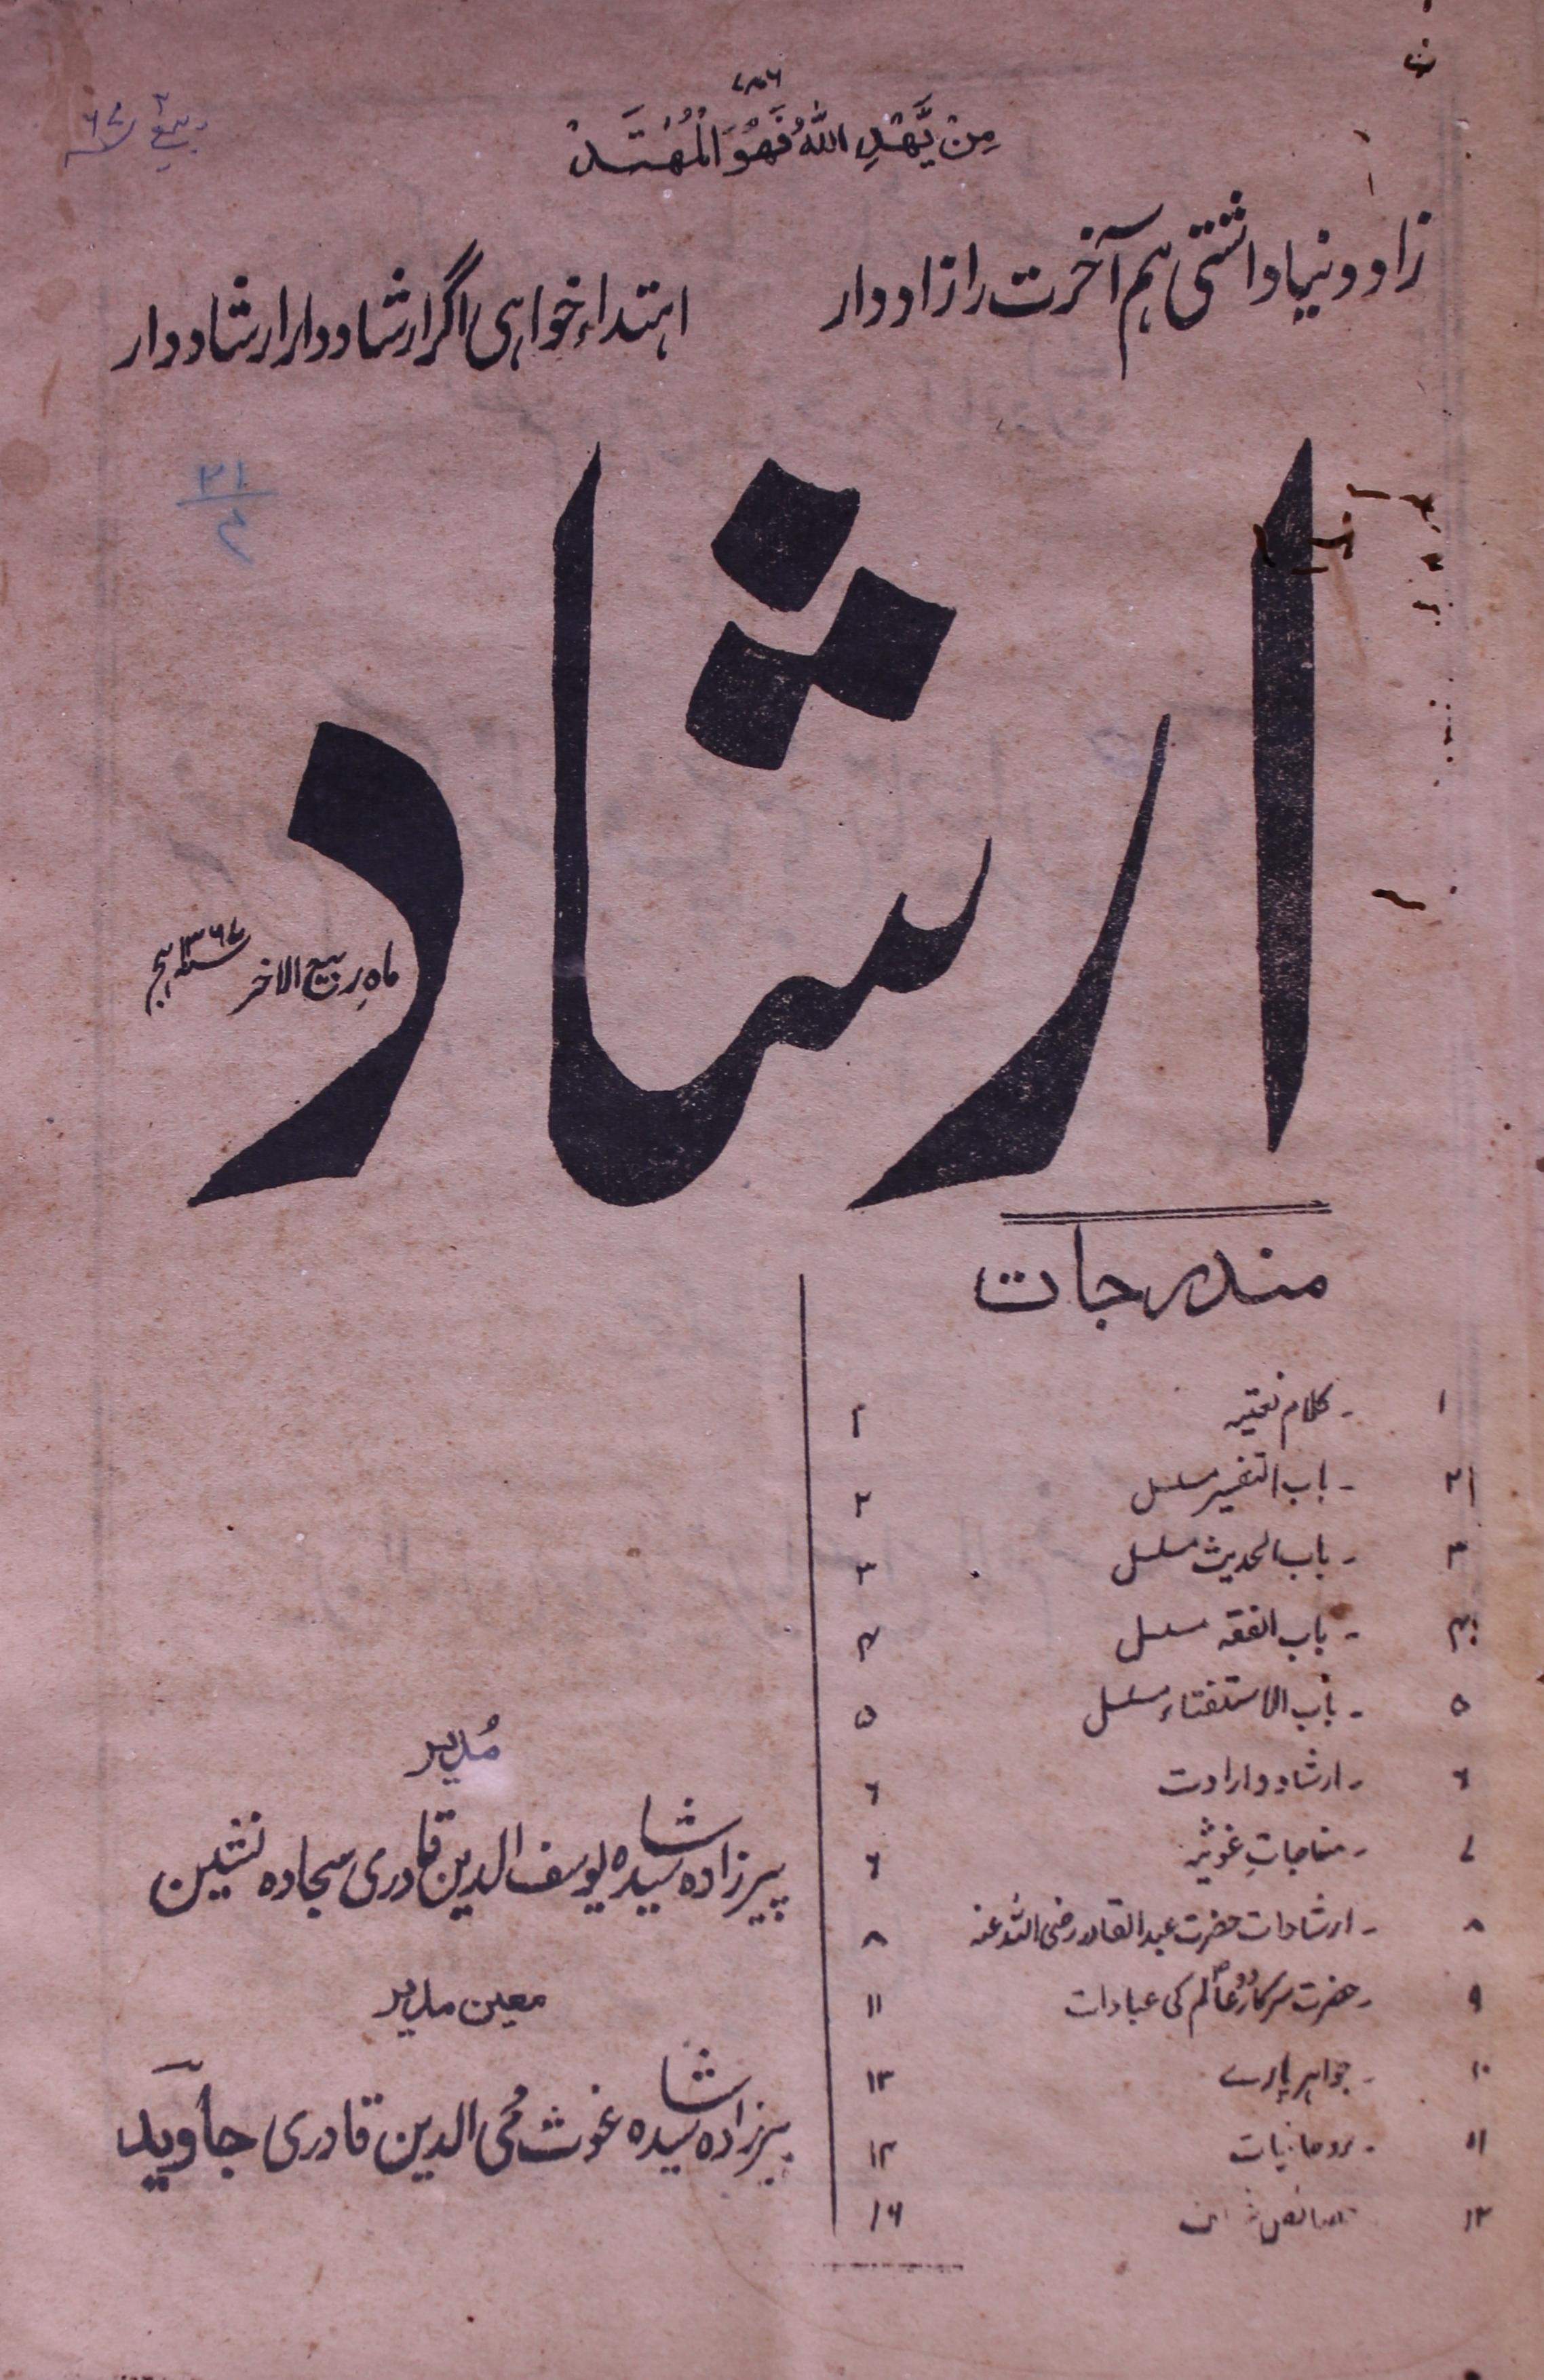 ۷۸۶
مِنْ یَّهْدِ اللّٰهُ فَهُوَ الْمُهْتَدْ
ربیع ۲ ۶۷
زاد دنیا داشتی ہم آخرت را زاد دار
اہتداء خواہی اگر ارشاد دار ارشاد دار
۲۱
۴
ارشاد
ماہِ ربیع الآخر ۱۳۶۷ ہج
مندرجات
۱ - کلام نعتیہ ۲
۲ - باب التفسیر مسلسل ۲
۳ - باب الحدیث مسلسل ۳
۴ - باب الفقہ مسلسل ۴
۵ - باب الاستفتاء مسلسل ۵
۶ - ارشاد و ارادت ۶
۷ - مناجاتِ غوثیہ ۶
۸ - ارشادات حضرت عبد القادر رضی اللہ عنہ ۸
۹ - حضرت سرکار دو عالم کی عبادات ۱۱
۱۰ - جواہر پارے ۱۳
۱۱ - روحانیات ۱۴
۱۲ ۱۶
مُدیر
پیرزادہ سید شاہ یوسف الدین قادری سجادہ نشین
معین مدیر
پیرزادہ سید شاہ غوث محی الدین قادری جاوید